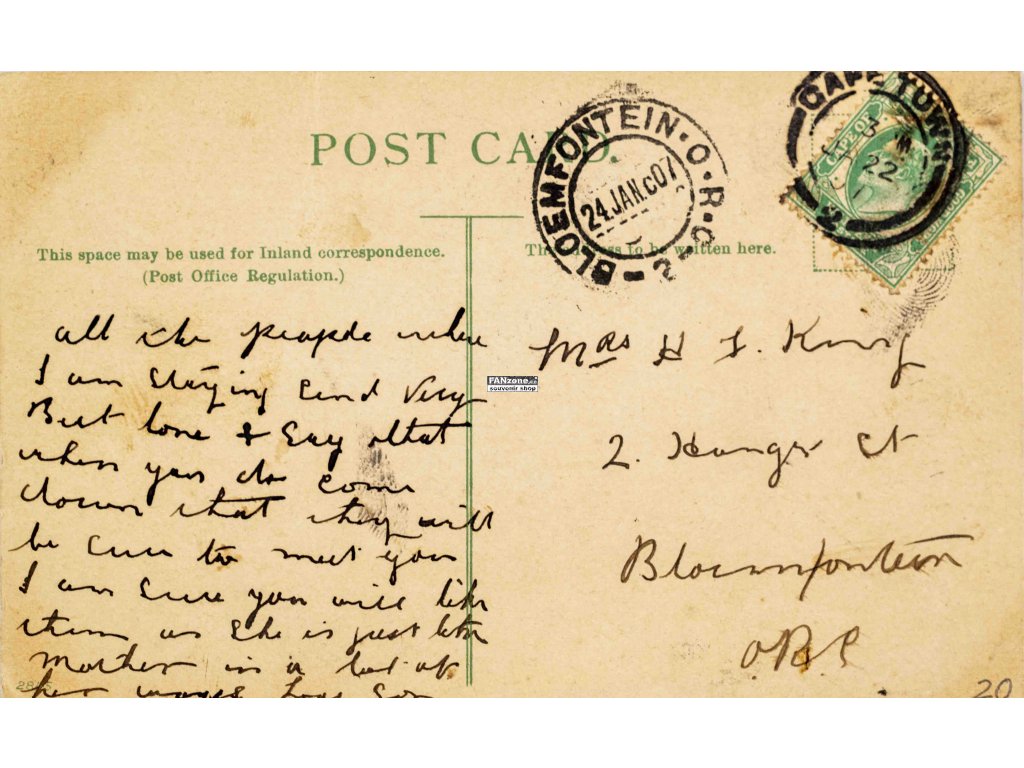 POST CARD.
BLOEMFONTEIN·O·R·C
24 JAN.C07
2
CAPE TOWN
22
2
CAPE OF
This space may be used for Inland correspondence.
(Post Office Regulation.)
to be written here.
all the people where
I am Staying Send Very
Best love & Say that
when you do come
down that they will
be Sure to meet you
I am Sure you will like
them as She is just like
Mother in a lot of
her ways Son
Mrs H King
2. St
Bloemfontein
ORC
FANzone.
souvenir shop
20